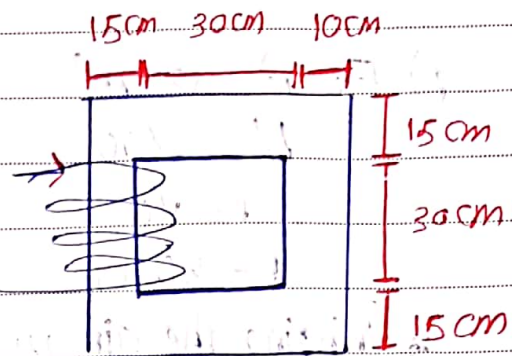 15cm 30cm 10cm
15cm
30cm
15cm